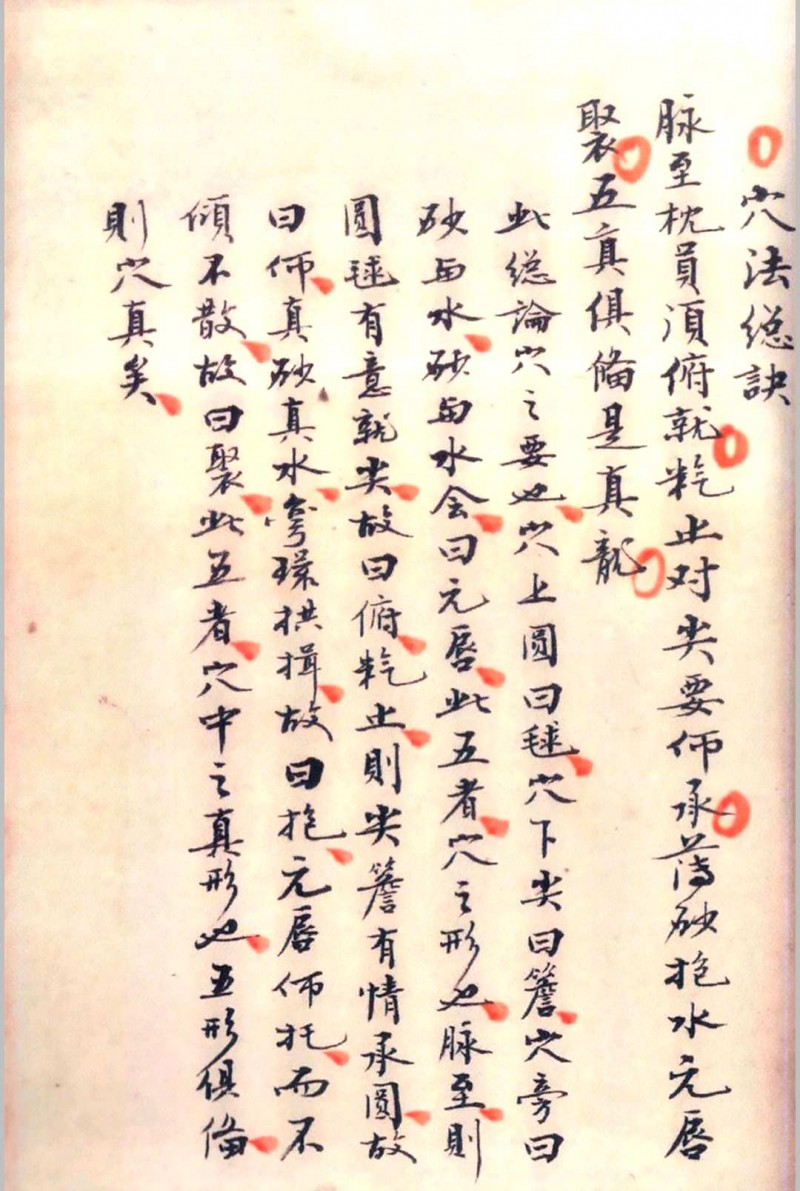 穴法総訣
脉至枕員須俯就粘止对尖要仰承薄砂抱水元唇
聚五真俱俻是真龍
此総論穴之要也穴上圓曰毬穴下尖曰簷穴旁曰
砂与水砂与水会曰元唇此五者穴之形也脉至則
圓毬有意就尖故曰俯粘止則尖簷有情承圓故
曰仰真砂真水弯環拱揖故曰抱元唇仰托而不
傾不散故曰聚此五者穴中之真形也五形俱俻
則穴真矣